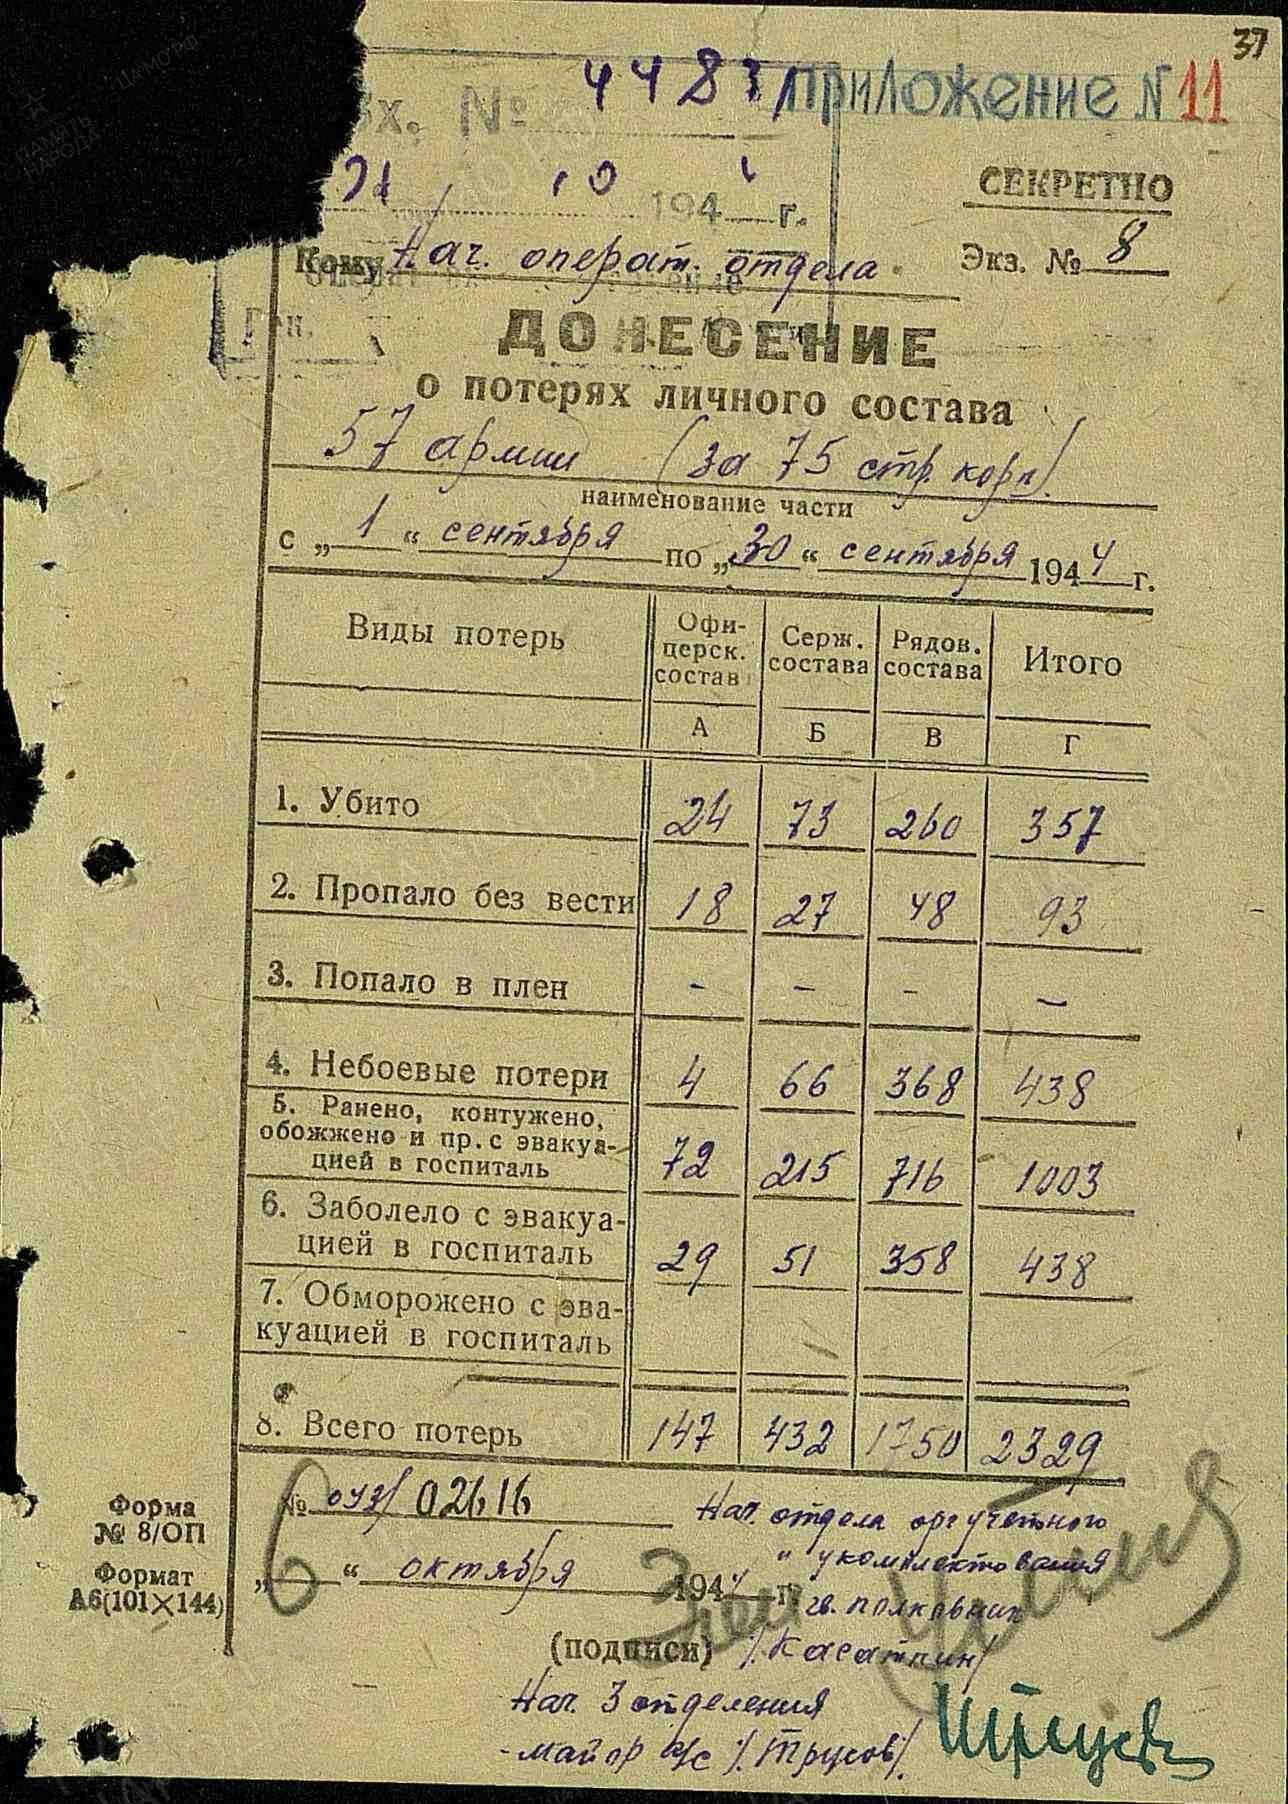 37
Вх. № 44831
приложение N 11
21 10 194 г.
СЕКРЕТНО
Кому Нач. операт. отдела
Экз. № 8
ДОНЕСЕНИЕ
о потерях личного состава
57 армии (за 75 стр. корп.)
наименование части
с „ 1 “ сентября по „ 30 “ сентября 1944 г.
Виды потерь Офи-церск. состав Серж. состава Рядов. состава Итого
А Б В Г
1. Убито 24 73 260 357
2. Пропало без вести 18 27 48 93
3. Попало в плен - - - -
4. Небоевые потери 4 66 368 438
5. Ранено, контужено,
обожжено и пр. с эвакуа-
цией в госпиталь 72 215 716 1003
6. Заболело с эвакуа-
цией в госпиталь 29 51 358 438
7. Обморожено с эва-
куацией в госпиталь
8. Всего потерь 147 432 1750 2329
Форма
№ 8/ОП
Формат
А6(101×144)
№ 02616
Нач. отдела оргучетного
" укомплектования
„ 6 “ октября 1944 г.
гв. полковник
(подписи) /Касаткин/
Нач. 3 отделения
майор а/с /Трусов/.
ПАМЯТЬ
НАРОДА
ЦАМО.РФ